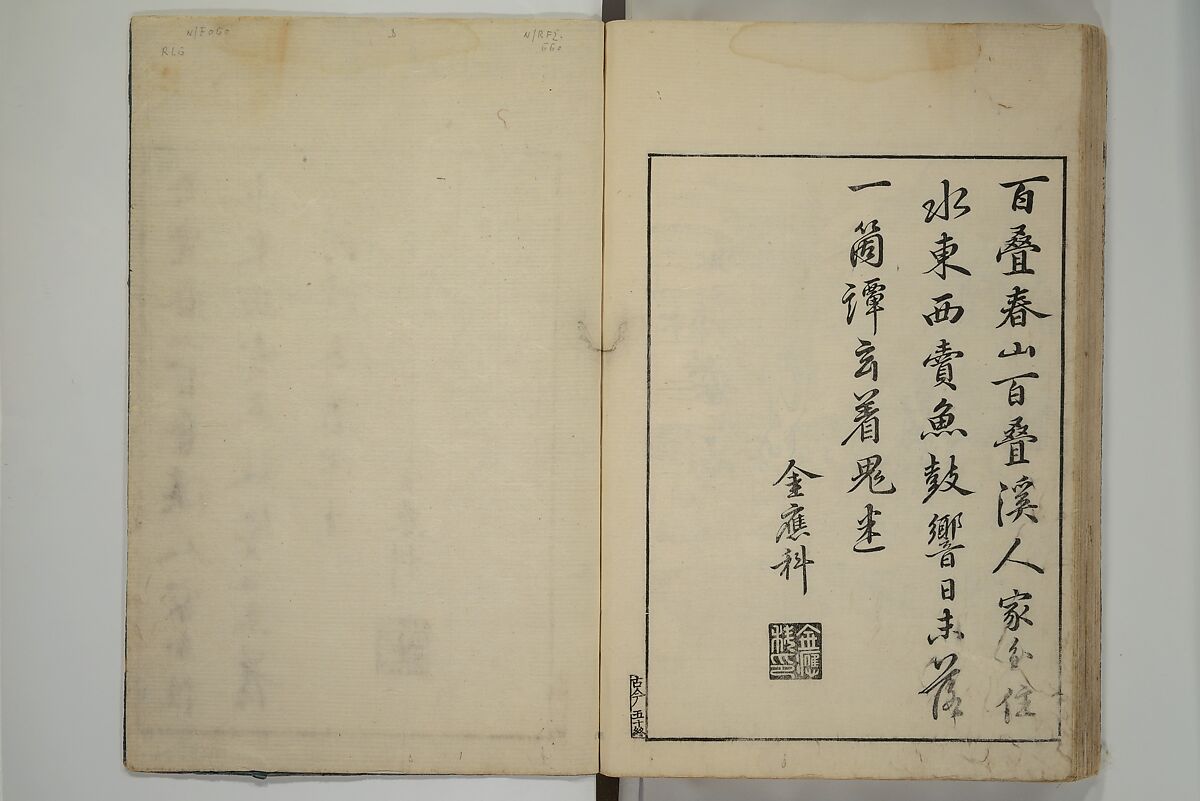 百疊春山百疊溪人家分住
水東西賣魚鼓響日未落
一箇譚玄着鬼迷
金應科
金應
科印
古今 五十終
N/5050
RLG